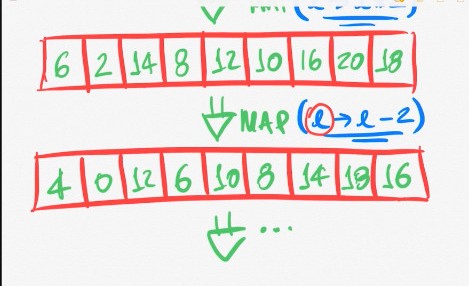 6 2 14 8 12 10 16 20 18
MAP (l → l - 2)
4 0 12 6 10 8 14 18 16
...